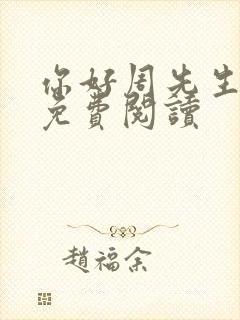 你好周先生
免費閱讀
趙福余